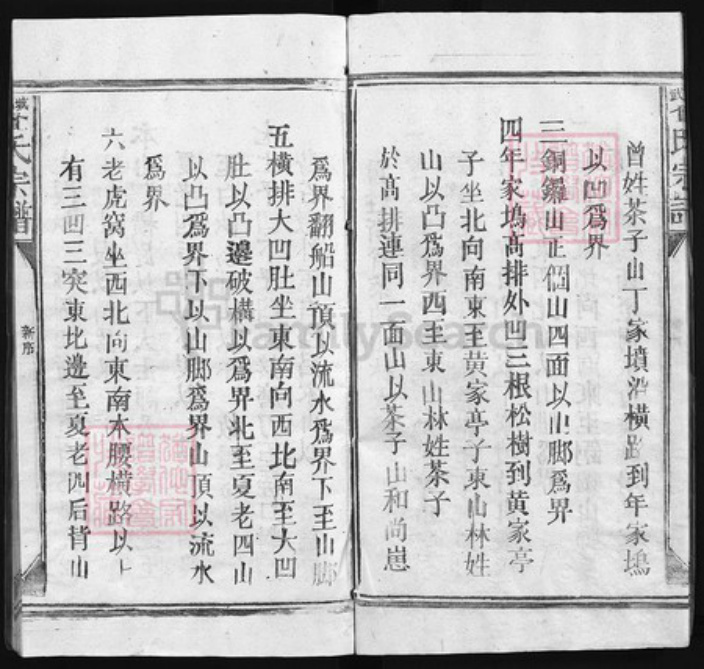 曾姓茶子山丁家墳沿橫路到年家塢
以凹爲界
三銅鑼山正個山四面以山腳爲界
四年家塢高排外凹三根松樹到黄家亭
子坐北向南東至黄家亭子東山林姓
山以凸爲界西至東山林姓茶子
於高排連同一面山以茶子山和尚崽
爲界翻船山頂以流水爲界下至山腳
五橫排大凹肚坐東南向西北南至大凹
肚以凸邊破橫以爲界北至夏老四山
以凸爲界下以山腳爲界山頂以流水
爲界
六老虎窩坐西北向東南本腰橫路以上
有三凹三突東北邊至夏老四后背山
氏宗譜
新序
FamilySearch